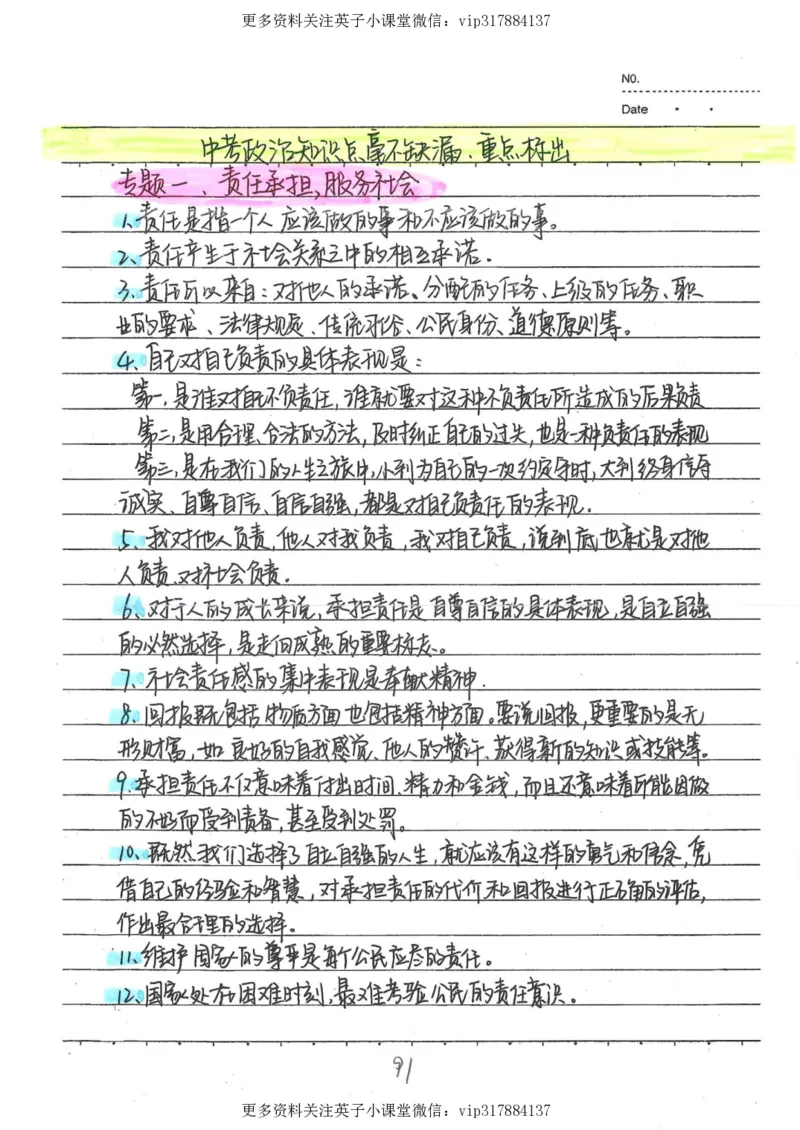 更多资料关注英子小课堂微信：vip317884137
NO.
Date
中考政治知识点毫不缺漏、重点标出
专题一、责任承担、服务社会
1、责任是指一个人应该做的事和不应该做的事。
2、责任产生于社会关系之中的相互承诺.
3、责任所以来自：对他人的承诺、分配的任务、上级的任务、职
业的要求、法律规定、传统习俗、公民身份、道德原则等。
4、自己对自己负责的具体表现是：
第一,是谁对自己不负责任,谁就要对这种不负责任所造成的后果负责
第二,是用合理、合法的方法,及时纠正自己的过失,也是一种负责任的表现
第三,是在我们的人生之旅中,小到为自己的一次约定守时,大到终身信守
诚实、自尊自信、自信自强,都是对自己负责任的表现.
5、我对他人负责,他人对我负责,我对自己负责,说到底也就是对他
人负责、对社会负责.
6、对于人的成长来说,承担责任是自尊自信的具体表现,是自立自强
的必然选择,是走向成熟的重要标志。
7、社会责任感的集中表现是奉献精神.
8、回报既包括物质方面也包括精神方面。要说回报,更重要的是无
形财富,如良好的自我感觉、他人的赞许、获得新的知识或技能等。
9.承担责任不仅意味着付出时间、精力和金钱,而且还意味着可能因做
的不好而受到责备,甚至受到处罚。
10、既然我们选择了自立自强的人生,就应该有这样的勇气和信念,凭
借自己的经验和智慧,对承担责任的代价和回报进行正确的评估,
作出最合理的选择.
11、维护国家的尊严是每个公民应尽的责任。
12、国家处在困难时刻,最难考验公民的责任意识。
91
更多资料关注英子小课堂微信：vip317884137